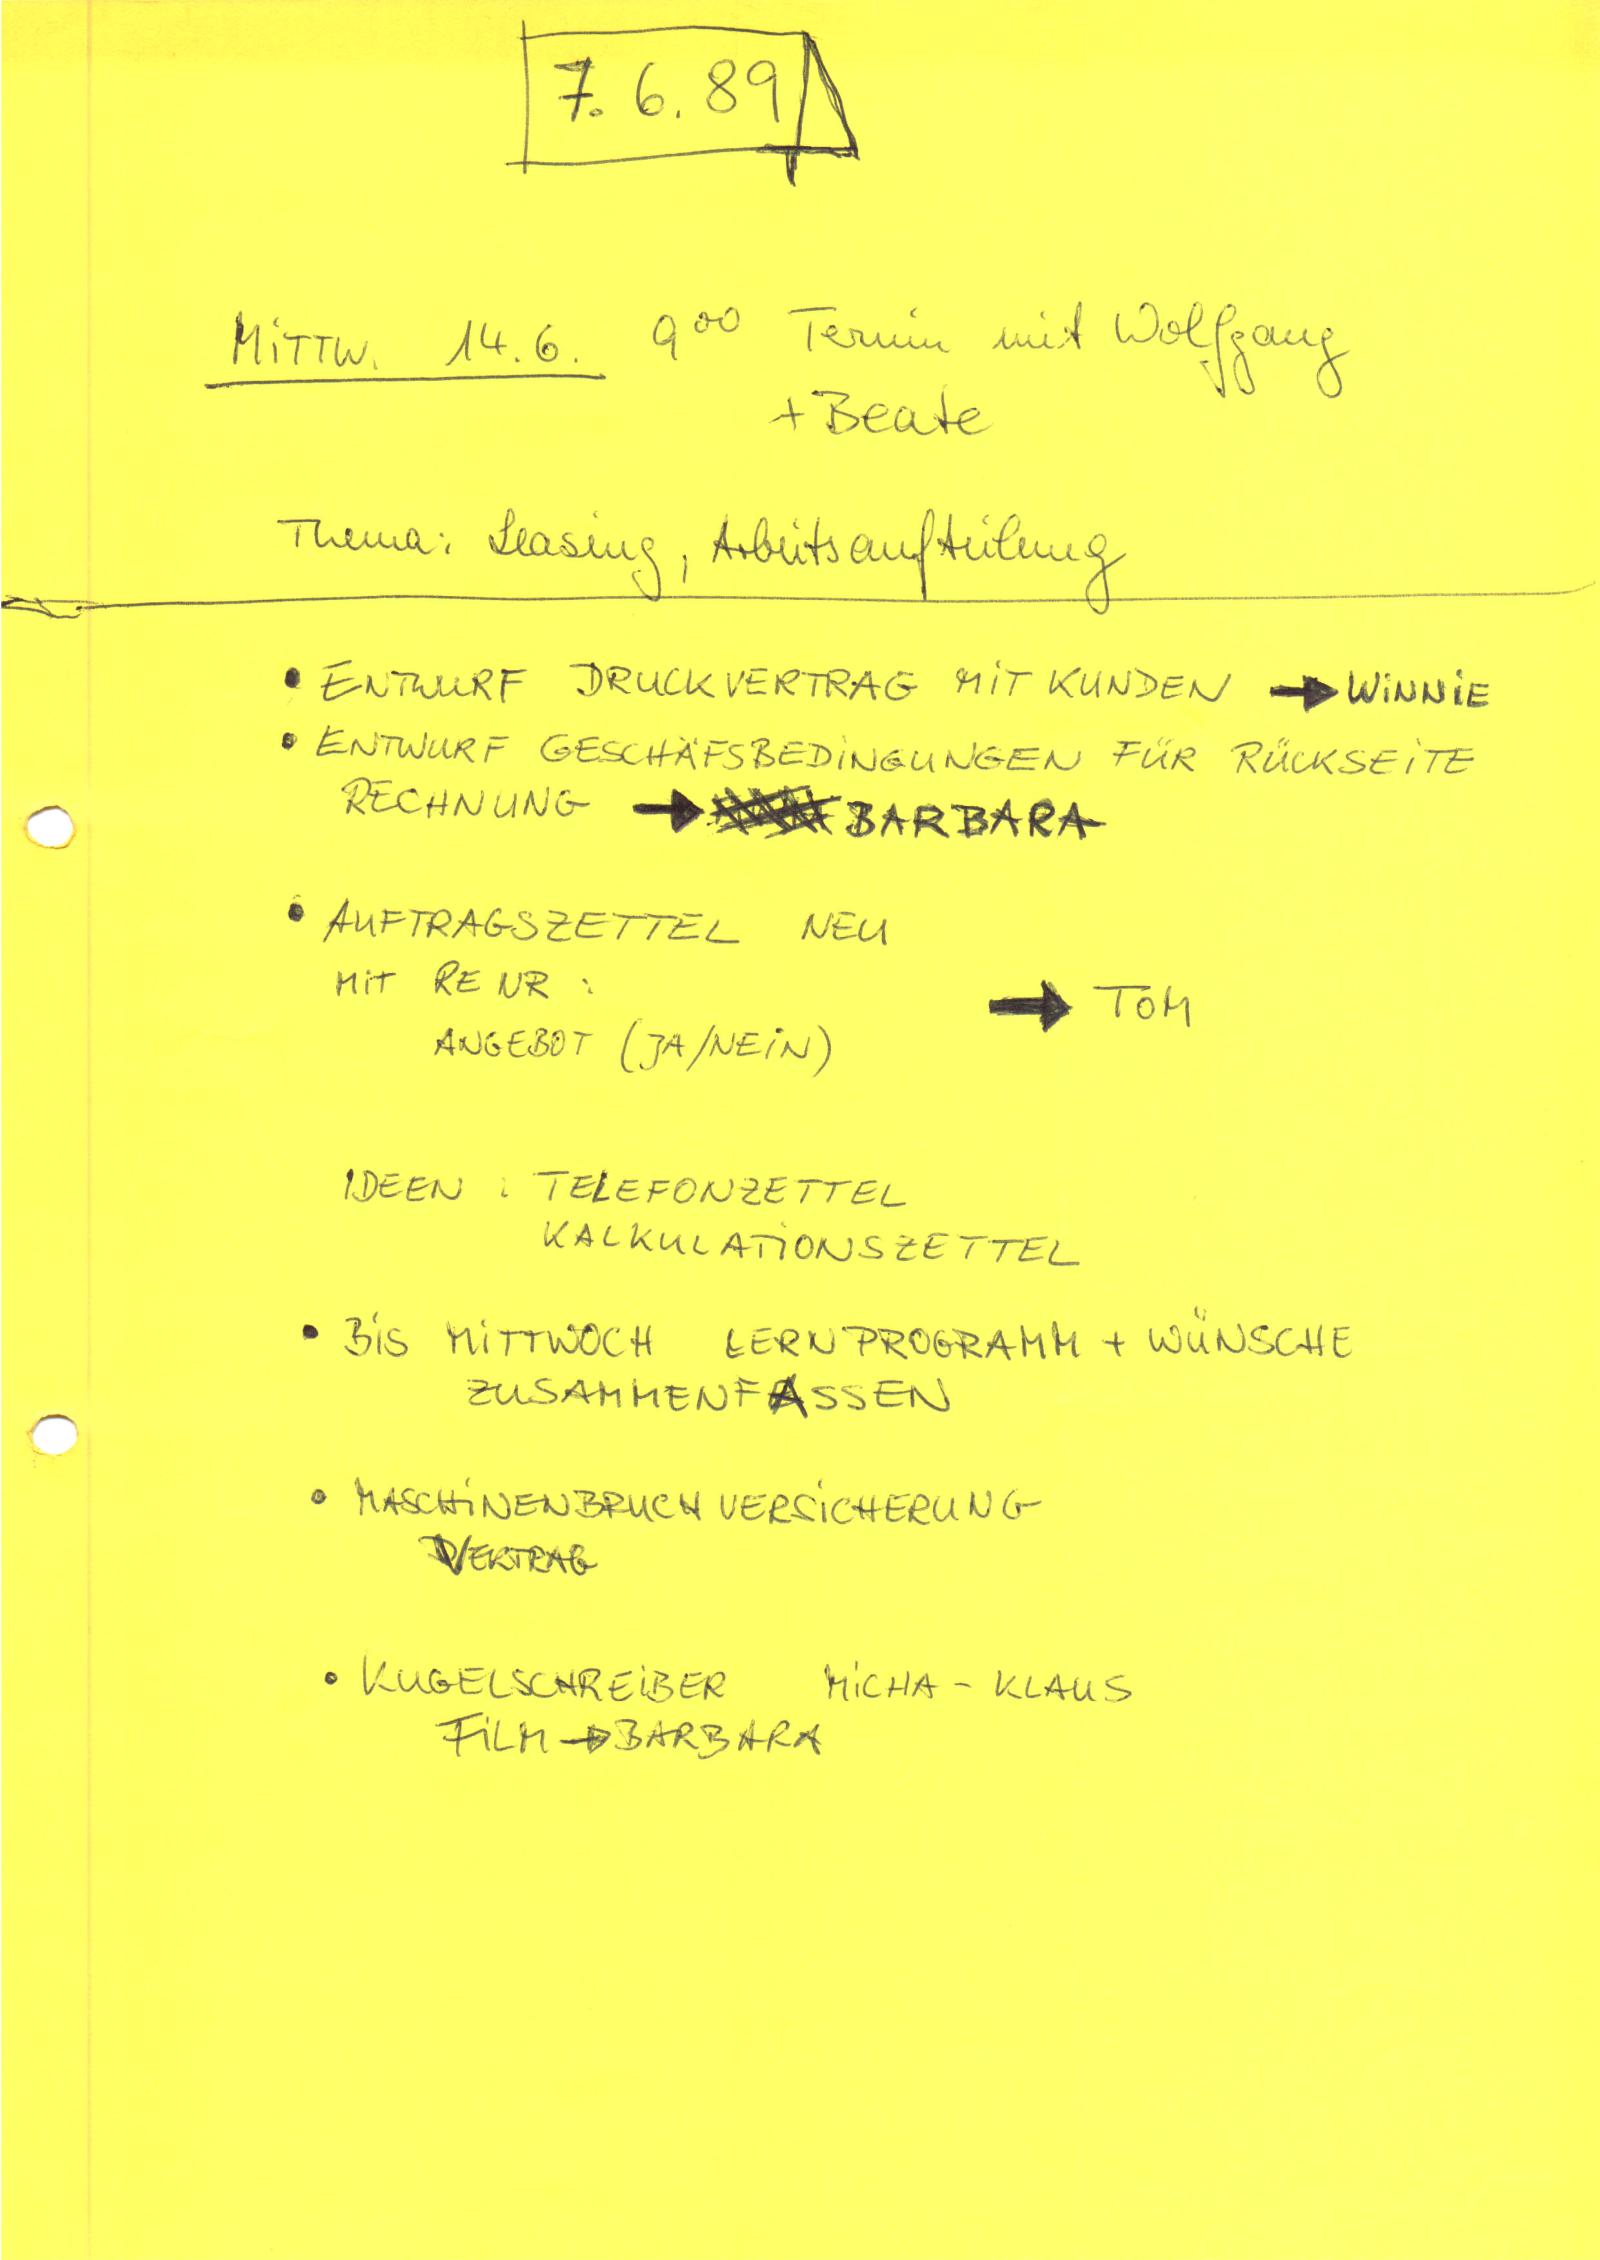 7.6.89
MITTW. 14.6. 9⁰⁰ Termin mit Wolfgang
+ Beate
Thema: Leasing, Arbeitsaufteilung
• ENTWURF DRUCKVERTRAG MIT KUNDEN → WINNIE
• ENTWURF GESCHÄFSBEDINGUNGEN FÜR RÜCKSEITE
RECHNUNG → BARBARA
• AUFTRAGSZETTEL NEU
MIT RE NR :
→ TOM
ANGEBOT (JA/NEIN)
IDEEN : TELEFONZETTEL
KALKULATIONSZETTEL
• BIS MITTWOCH LERNPROGRAMM + WÜNSCHE
ZUSAMMENFASSEN
• MASCHINENBRUCHVERSICHERUNG
VERTRAG
• KUGELSCHREIBER MICHA - KLAUS
FILM → BARBARA